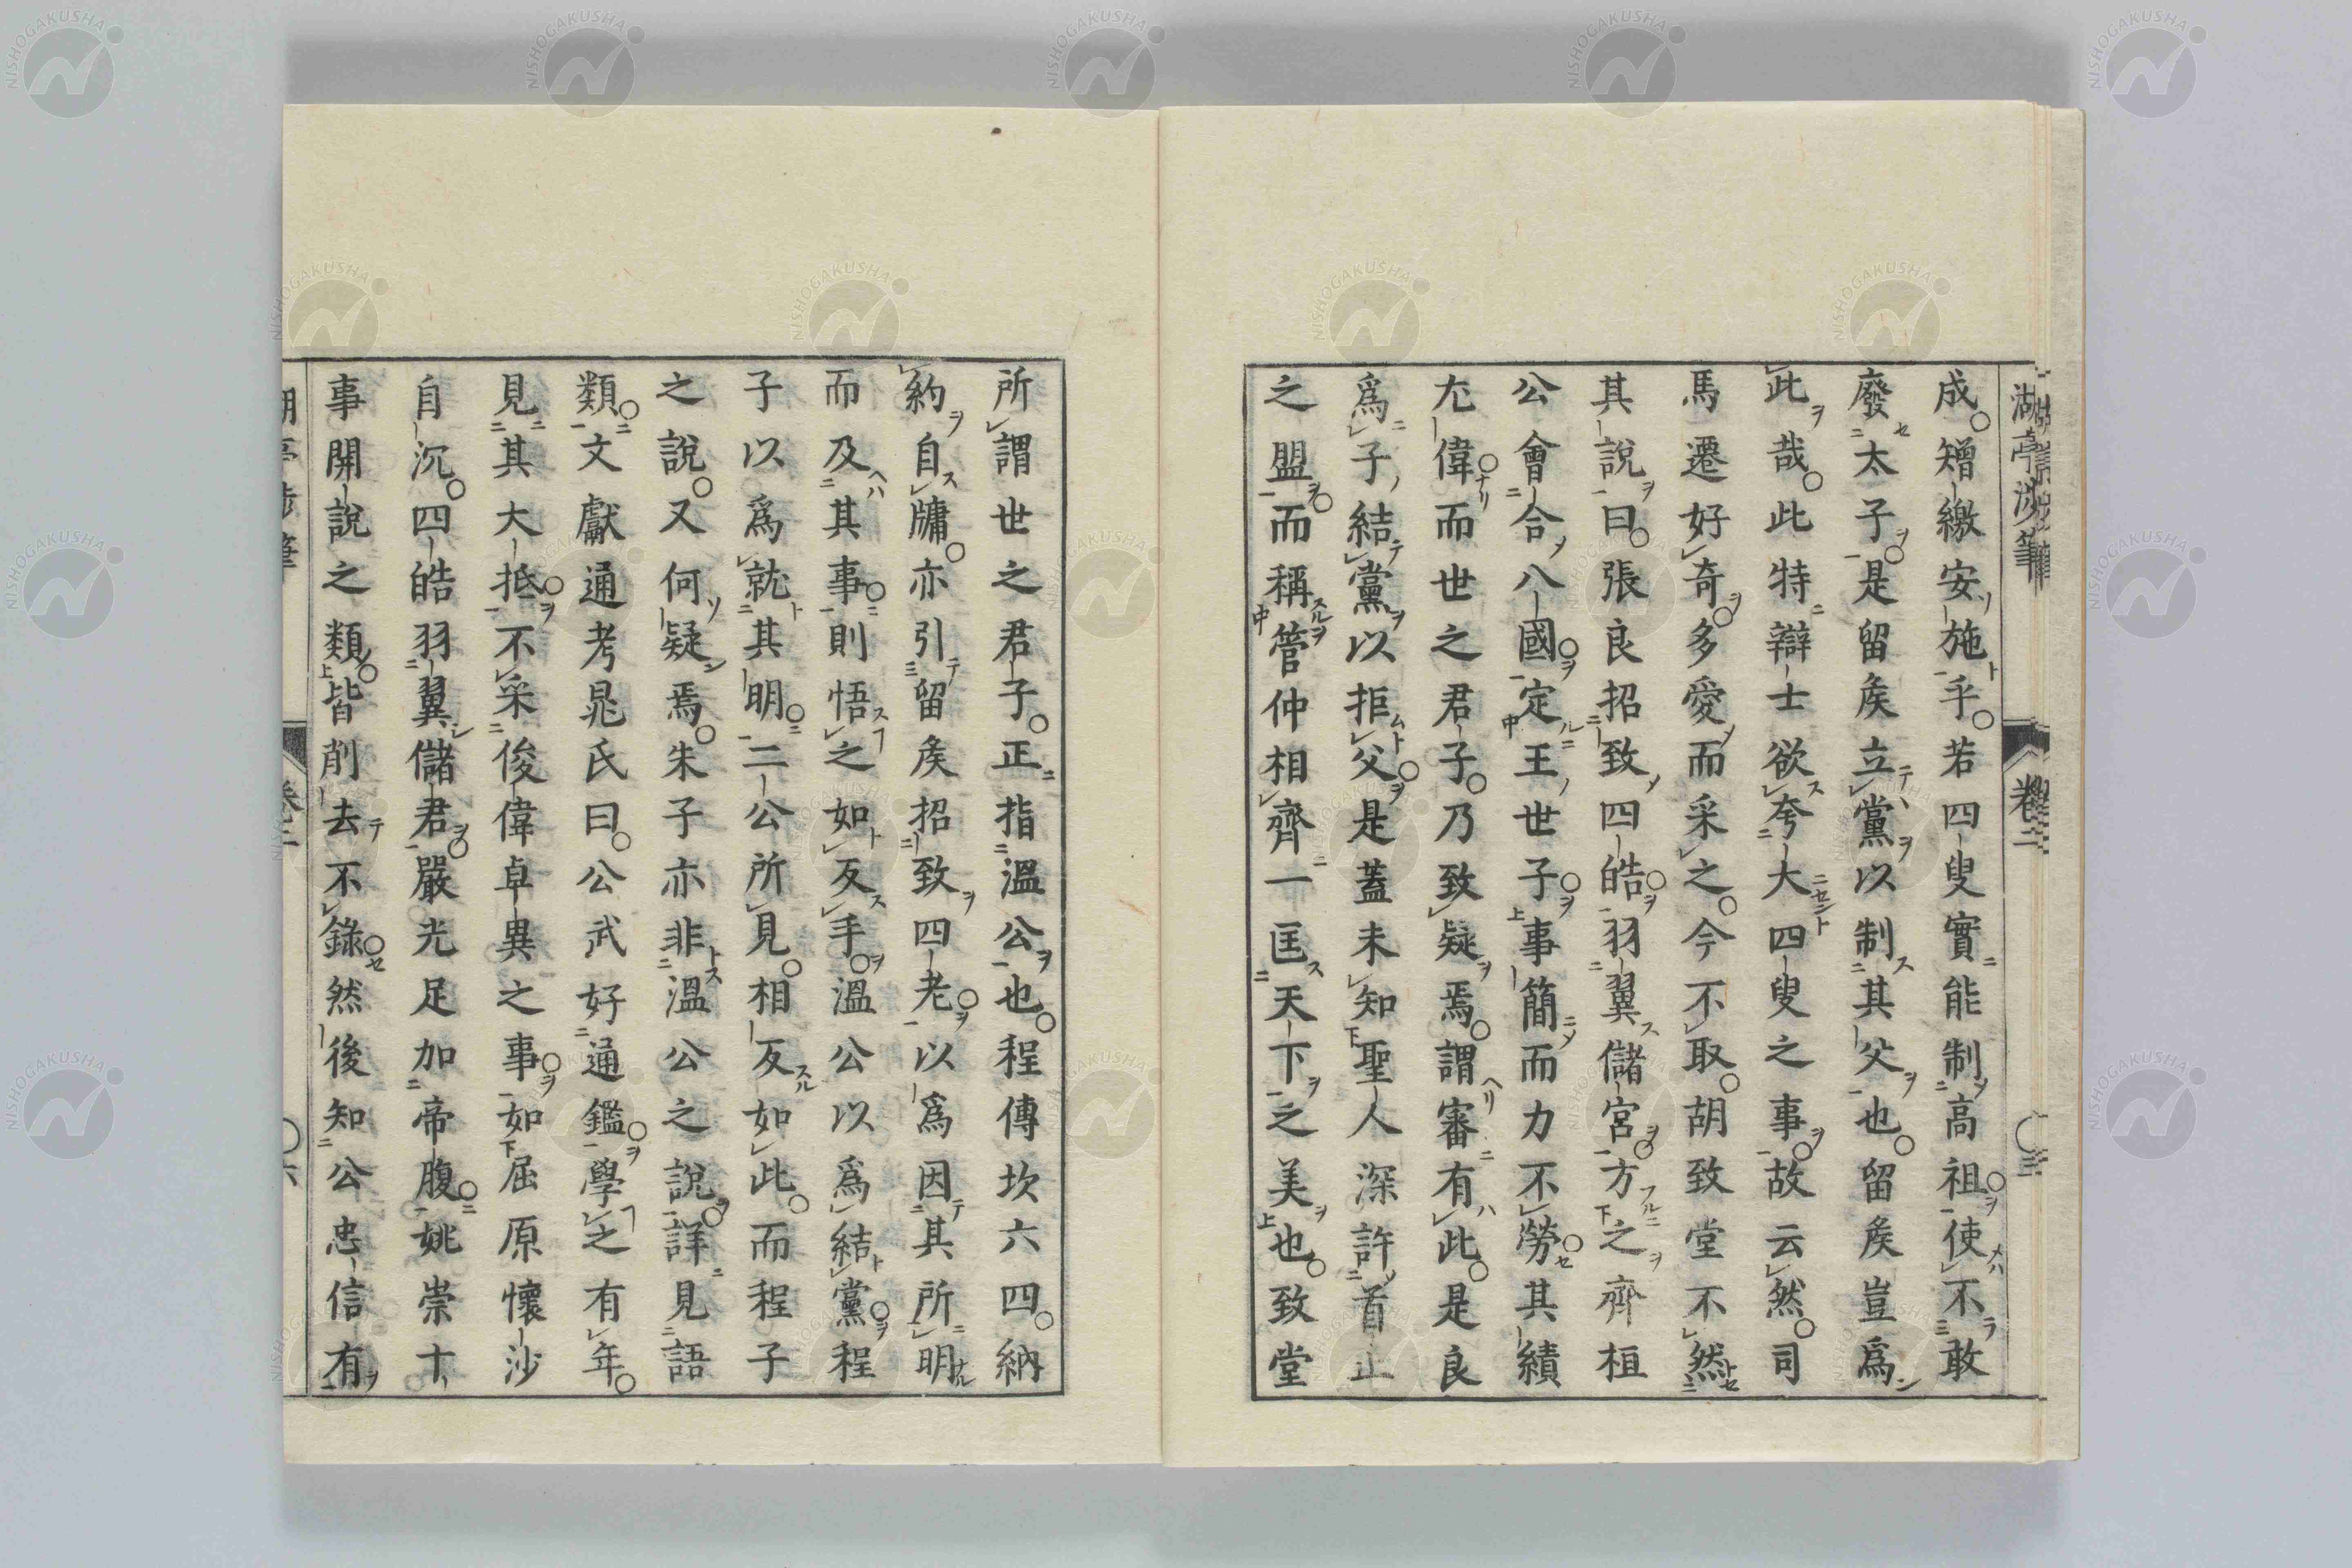 成矰繳安施乎若四叟實能制高祖使不敢
廢太子是留矦立黨以制其父也留矦豈爲
此哉此特辯士欲夸大四叟之事故云然司
馬遷好奇多愛而采之今不取胡致堂不然
其說曰張良招致四皓羽翼儲宮方之齊桓
公會合八國定王世子事簡而力不勞其績
尤偉而世之君子乃致疑焉謂審有此是良
爲子結黨以拒父是蓋未知聖人深許首止
之盟而稱管仲相齊一匡天下之美也致堂
所謂世之君子正指溫公也程傳坎六四納
約自牖亦引留矦招致四老以爲因其所明
而及其事則悟之如反手溫公以爲結黨程
子以爲就其明二公所見相反如此而程子
之說又何疑焉朱子亦非溫公之說詳見語
類文獻通考晁氏曰公武好通鑑學之有年
見其大抵不采俊偉卓異之事如屈原懷沙
自沉四皓羽翼儲君嚴光足加帝腹姚崇十
事開說之類皆削去不錄然後知公忠信有
NISHOGAKUSHA